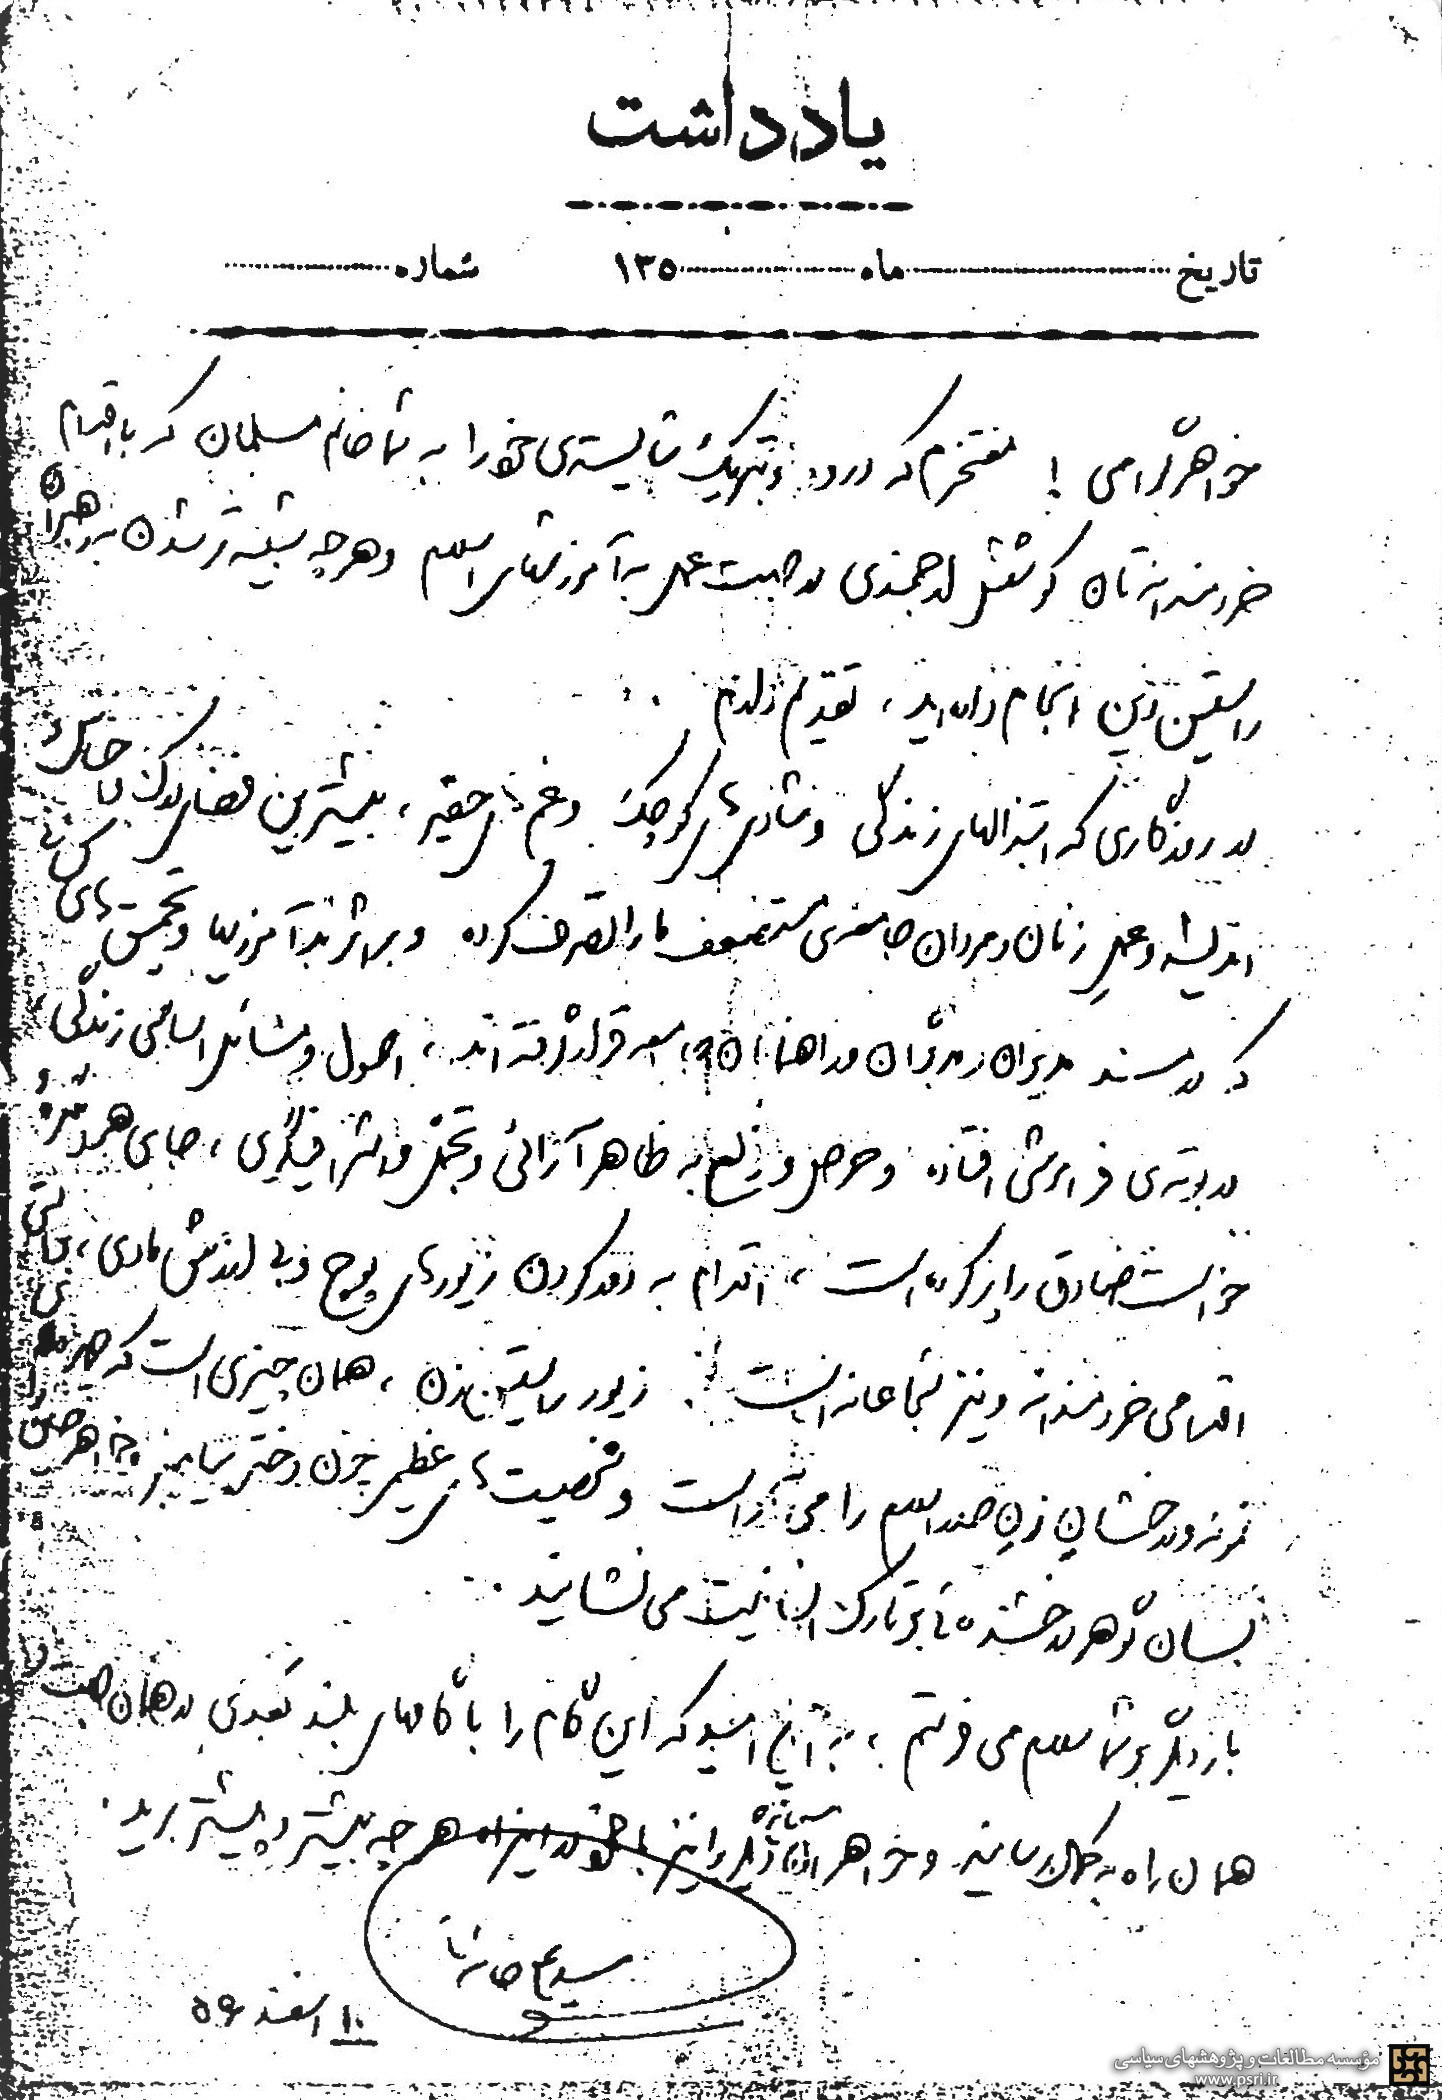 یادداشت
تاریخ ماه ۱۳۵ شماره
خواهر گرامی! مفتخرم که درود و تبریک شایسته‌ی خود را به شما خانم مسلمان که با اقدام
خردمندانه‌تان کوشش ارجمندی در جهت عمل به آموزشهای اسلام و هرچه شبیه‌تر شدن به رهبران
راستین دین انجام داده‌اید، تقدیم دارم.
در روزگاری که ابتذالهای زندگی و شادی‌های کوچک و غم‌های حقیر، بیشترین فضای درک
اندیشه و عمل زنان و مردان جامعه‌ی مستضعف ما را تصرف کرده و بر اثر بدآموزیها و تحمیق‌های کسانی
که در مسند مدیران و مربیان و راهنمایان جامعه قرار گرفته‌اند، اصول و مسائل اساسی زندگی
در بوته‌ی فراموشی افتاده و حرص و ولع به ظاهرآرائی و تجمل و اشرافیگری، جای هر
خواست صادق را پر کرده است، اقدام به دور کردن زیورهای پوچ و بی ارزش مادی،
اقدامی خردمندانه و نیز شجاعانه است. زیور راستین زن، همان چیزی است که چهره‌ی
نمونه و درخشان زن صدر اسلام را می‌آراست و شخصیت‌های عظیمی چون دختر پیامبر و خواهر حسین را
بسان گوهر درخشنده‌ای بر تارک انسانیت می‌نشانید.
بار دیگر بر شما سلام می‌فرستم، به این امید که این گام را با گامهای بلند بعدی در همان جهت و
همان راه به کمال رسانید و خواهران دیگر را نیز با خود در این راه هرچه بیشتر و پیشتر برید.
سید علی خامنه‌ای
۱۰ اسفند ۵۶
مؤسسه مطالعات و پژوهشهای سیاسی
www.psri.ir